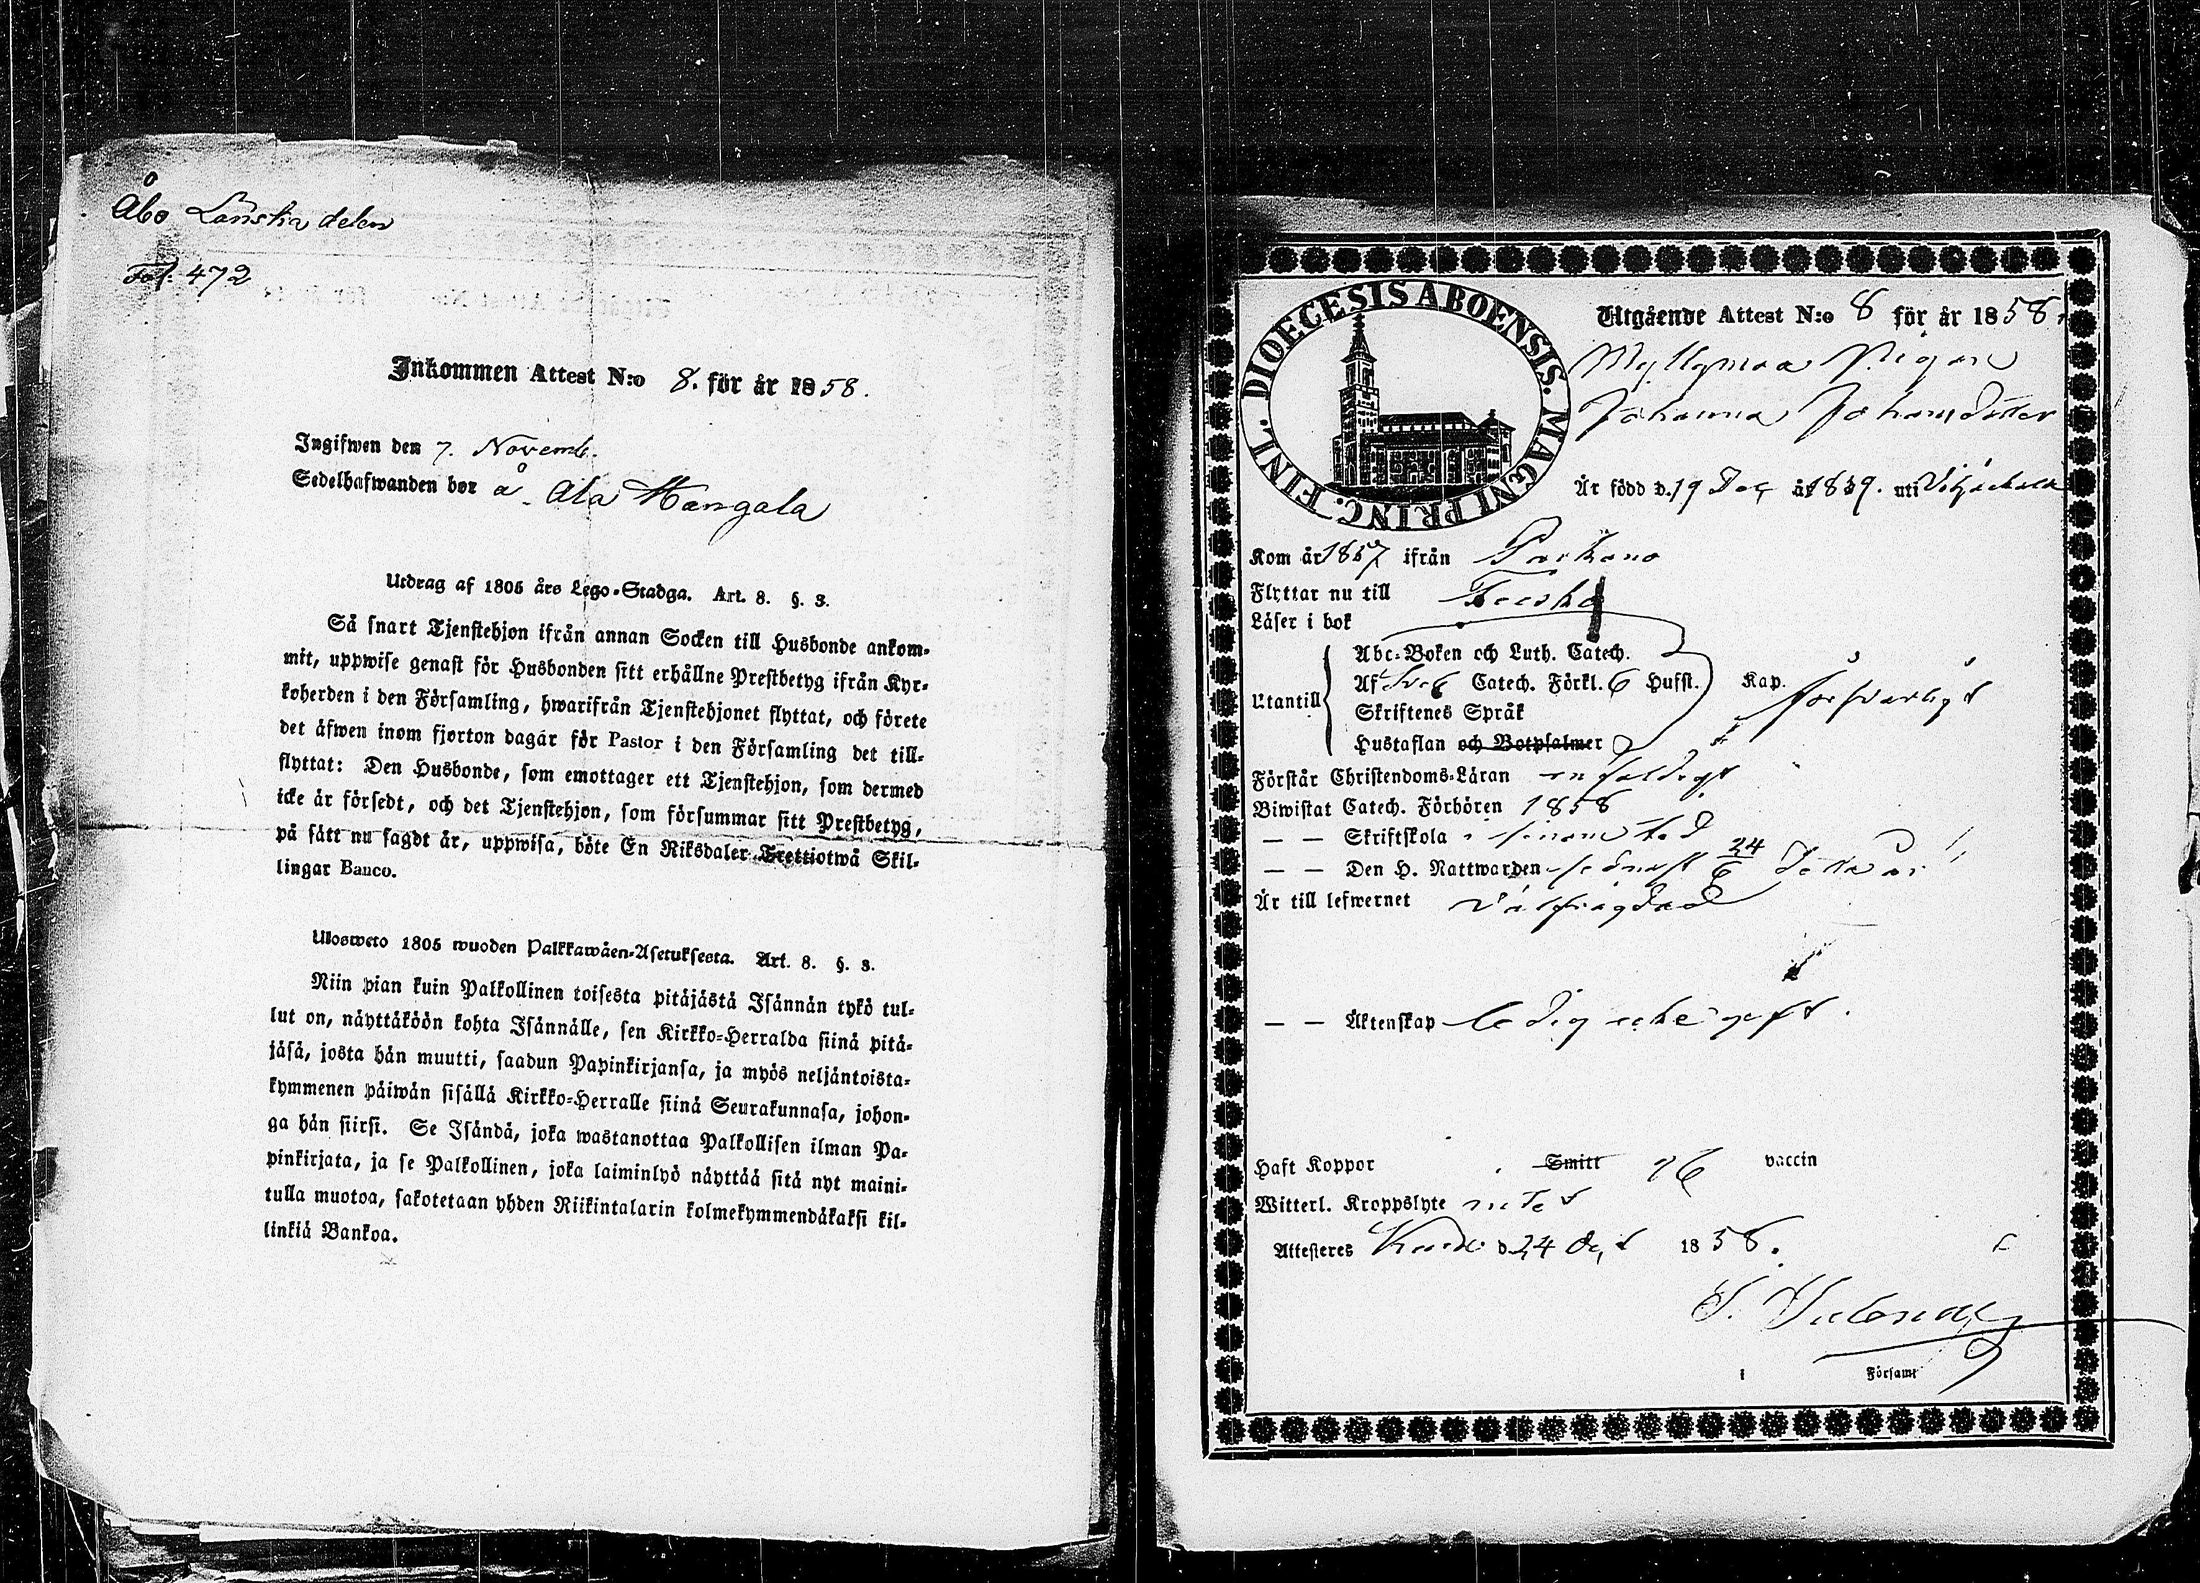 Åbo Länska delen
Fol: 472
Inkommen Attest N:o 8. för år 1858.
Ingifwen den 7. Novemb.
Sedelhafwanden bor å Ala Mangala
Utdrag af 1805 års Lego-Stadga. Art. 8. §. 3.
Så snart Tjenstehjon ifrån annan Socken till Husbonde ankom-
mit, uppwise genast för Husbonden sitt erhållne Prestbetyg ifrån Kyr-
koherden i den Församling, hwarifrån Tjenstehjonet flyttat, och förete
det äfwen inom fjorton dagar för Pastor i den Församling det till-
flyttat: Den Husbonde, som emottager ett Tjenstehjon, som dermed
icke är försedt, och det Tjenstehjon, som försummar sitt Prestbetyg,
på sätt nu sagdt är, uppwisa, böte En Riksdaler Trettiotwå Skil-
lingar Banco.
Ulosweto 1805 wuoden Palkkawäen-Asetuksesta. Art. 8. §. 3.
Niin pian kuin Palkollinen toisesta pitäjästä Isännän tykö tul-
lut on, näyttäköön kohta Isännälle, sen Kirkko-Herralda siinä pitä-
jäsä, josta hän muutti, saadun Papinkirjansa, ja myös neljäntoista-
kymmenen päiwän sisällä Kirkko-Herralle siinä Seurakunnasa, johon-
ga hän siirsi. Se Isändä, joka wastanottaa Palkollisen ilman Pa-
pinkirjata, ja se Palkollinen, joka laiminlyö näyttää sitä nyt maini-
tulla muotoa, sakotetaan yhden Riikintalarin kolmekymmendäkaksi kil-
linkiä Bankoa.
DIOECESIS ABOENSIS. MAGNI PRINC. FINL.
Utgående Attest N:o 8 för år 1858.
Myllymaa Pigan
Johanna Johansdotter
Är född d. 19 Dec år 1839. uti
Kom år 1857 ifrån Parkano
Flyttar nu till Teisko
Läser i bok
Utantill
Abc-Boken och Luth. Catech.
Af Sveb Catech. Förkl. 6 Hufst. Kap.
Skriftenes Språk
försvarligt
Hustaflan och Botpsalmer
Förstår Christendoms-Läran enfaldigt
Biwistat Catech. Förhören 1858
— — Skriftskola i sinom tid
— — Den H. Nattwarden sednast 24/6 detta år
Är till lefwernet välfrägdad
— — Äktenskap ledig icke gift.
Haft Koppor Smitt vaccin
Witterl. Kroppslyte intet
Attesteres d. 24 Oct 1858.
i Församl